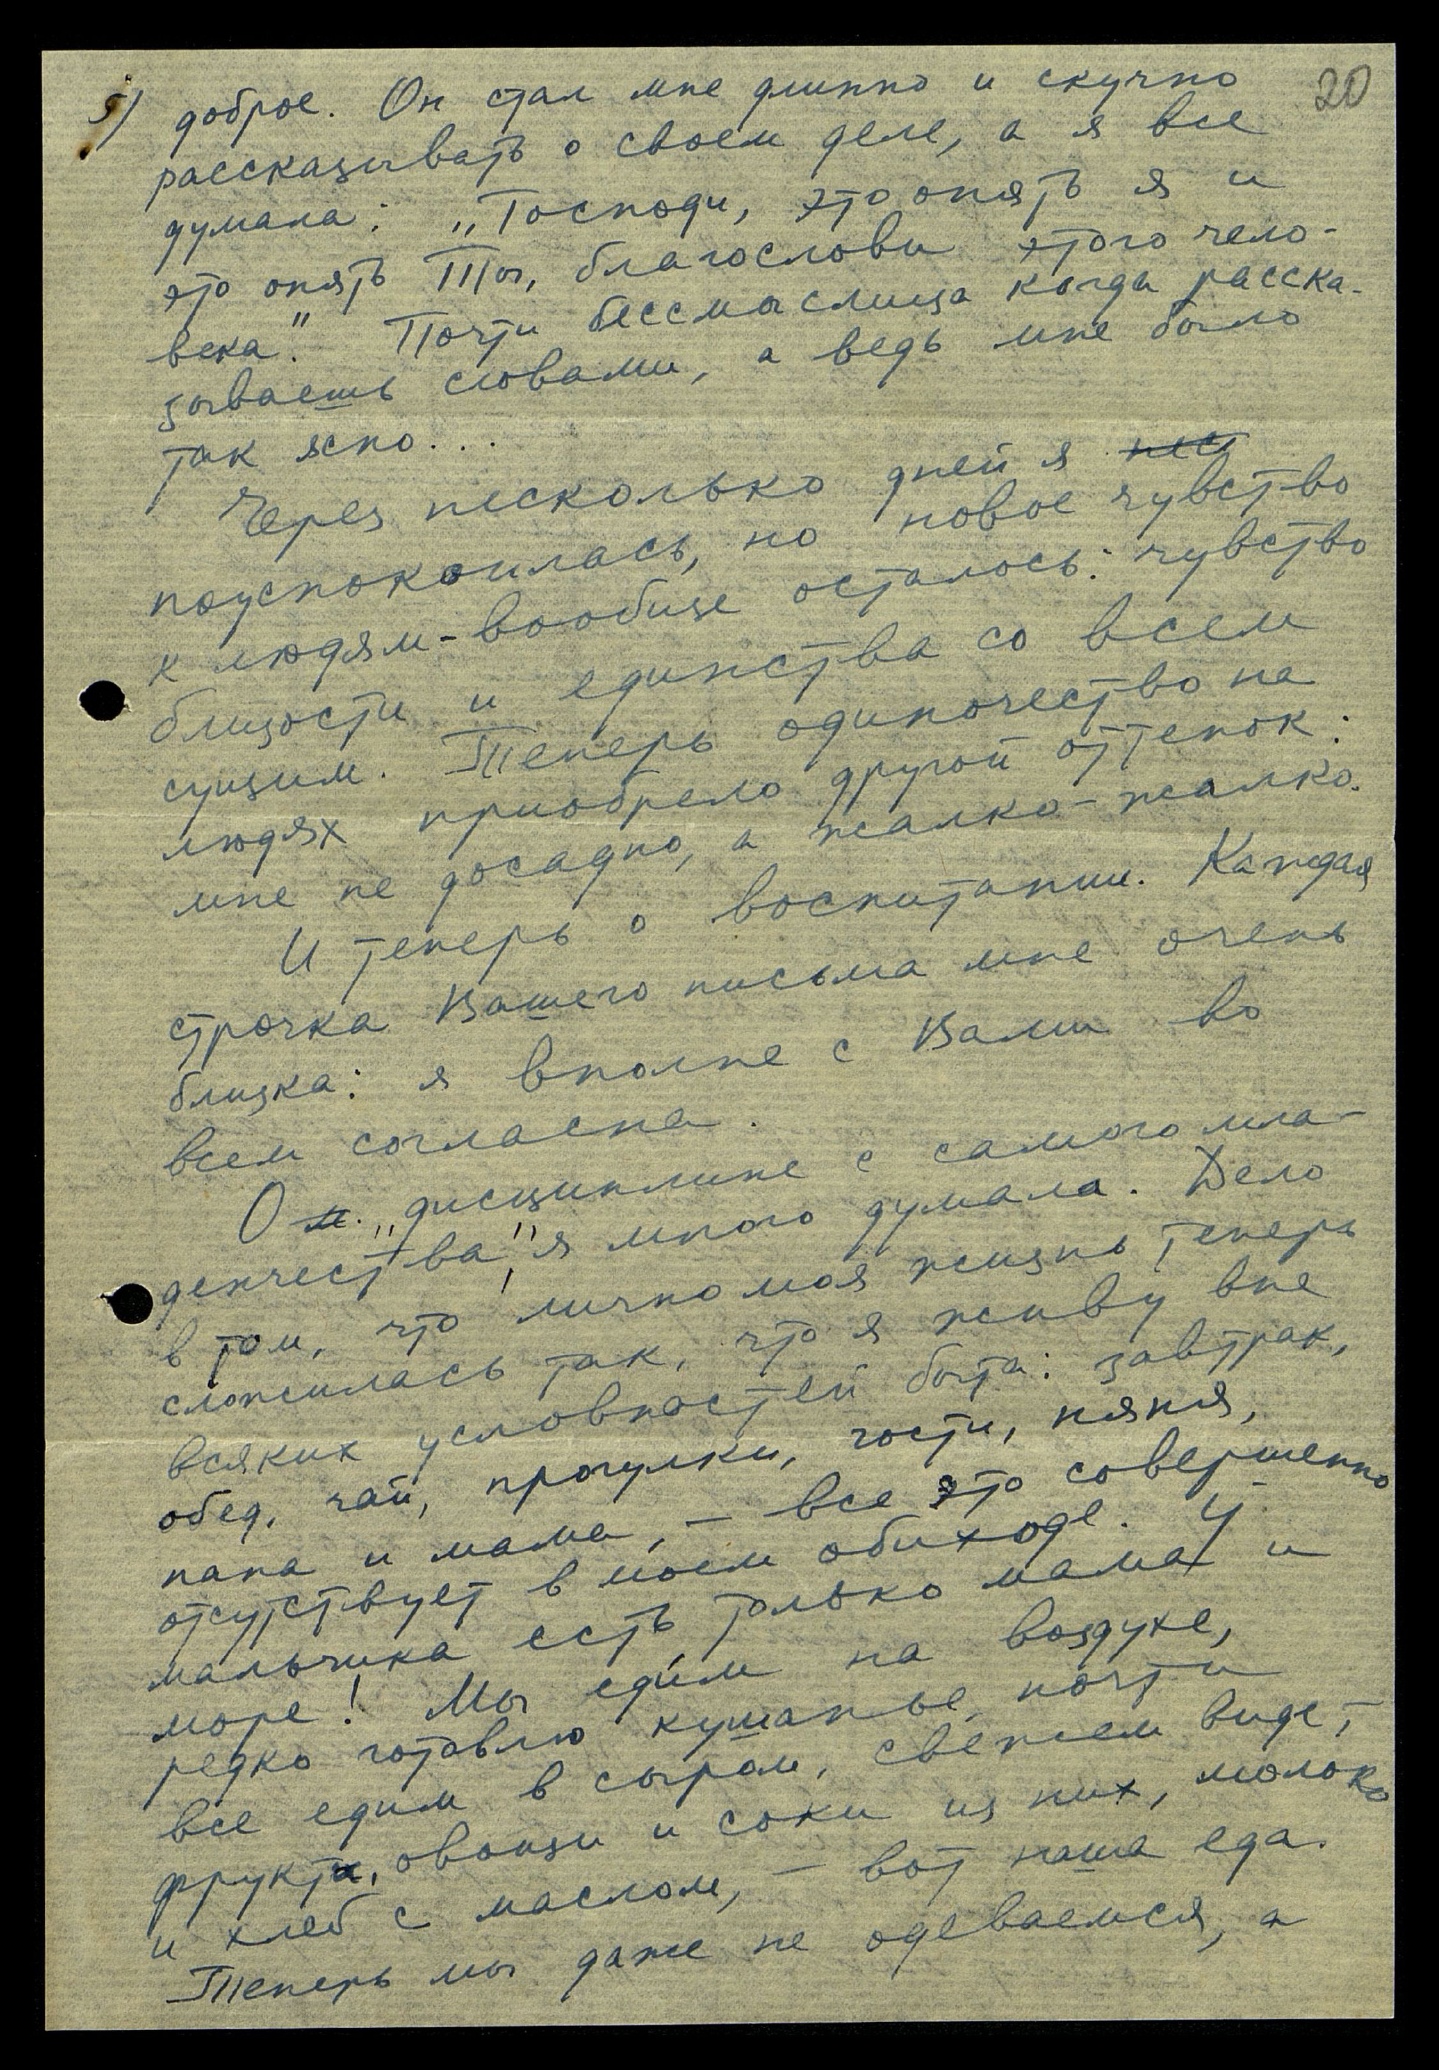 20
5) доброе. Он стал мне длинно и скучно
рассказывать о своем деле, а я все
думала: „Господи, это опять я и
это опять Ты, благослови этого чело-
века." Почти бессмыслица когда расска-
зываешь словами, а ведь мне было
так ясно...
Через несколько дней я
поуспокоилась, но новое чувство
к людям-вообще осталось: чувство
близости и единства со всем
сущим. Теперь одиночество на
людях приобрело другой оттенок:
мне не досадно, а жалко-жалко.
И теперь о воспитании. Каждая
строчка Вашего письма мне очень
близка: я вполне с Вами во
всем согласна.
О „дисциплине с самого мла-
денчества" я много думала. Дело
в том, что лично моя жизнь теперь
сложилась так, что я живу вне
всяких условностей быта: завтрак,
обед, чай, прогулки, гости, няня,
папа и мама, – все это совершенно
отсутствует в моем обиходе. У
мальчика есть только мама и
море! Мы едим на воздухе,
редко готовлю кушанье, почти
все едим в сыром, свежем виде, –
фрукты, овощи и соки из них, молоко
и хлеб с маслом, – вот наша еда.
Теперь мы даже не одеваемся, а